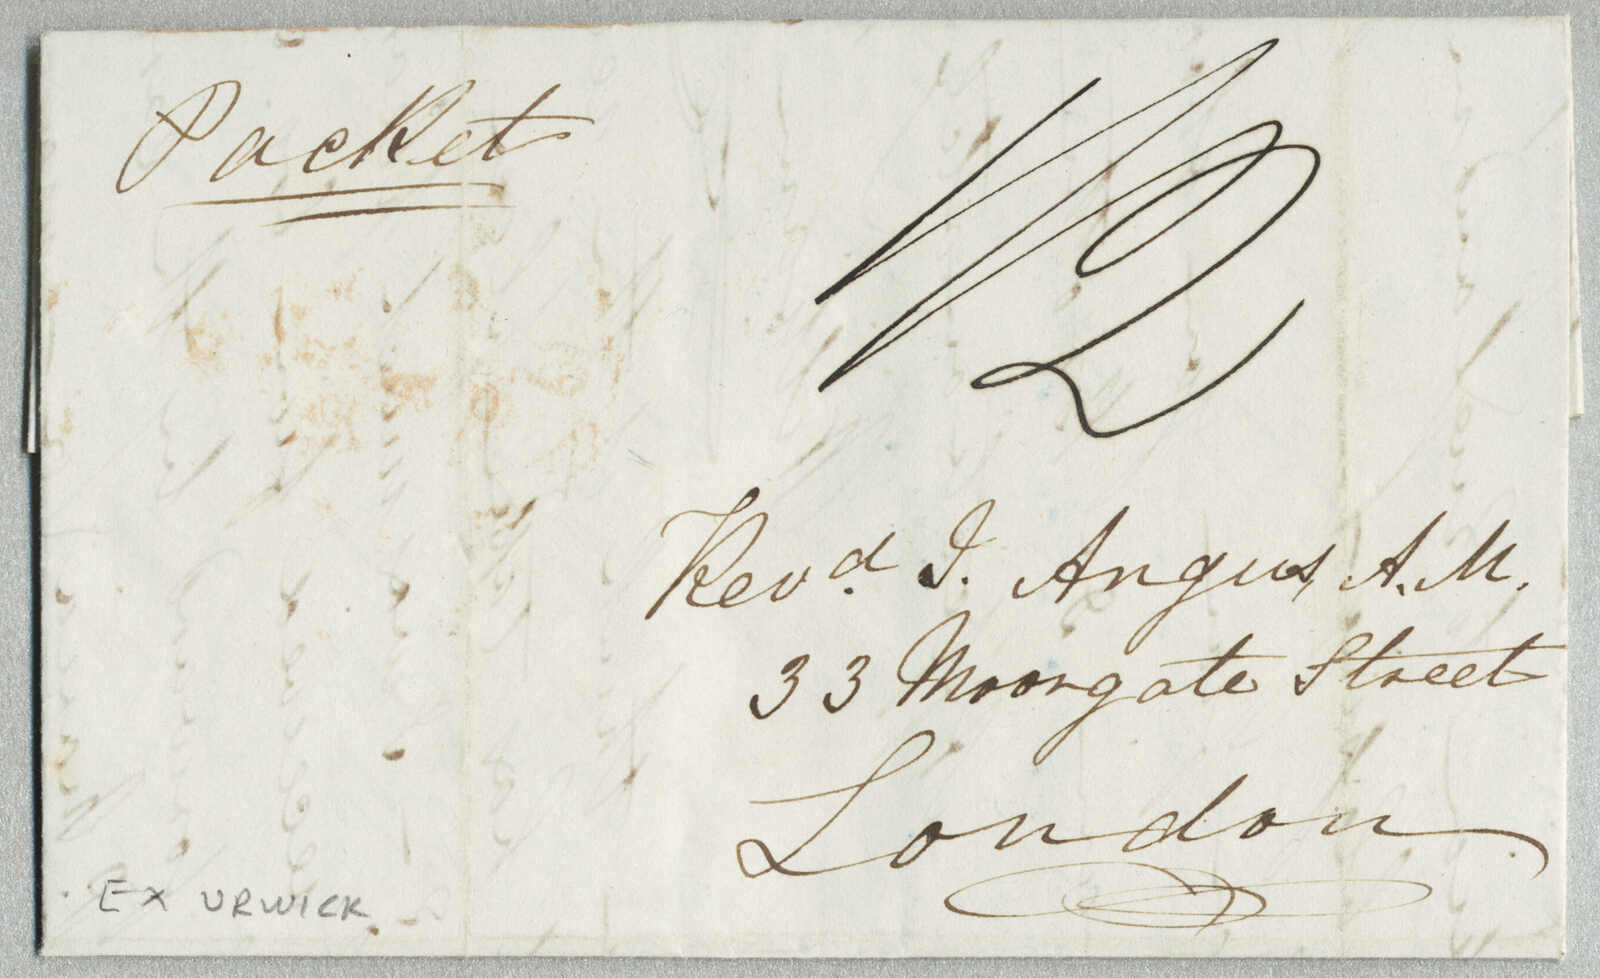 Packet
1/2
Revd. J. Angus, A.M.
33 Moorgate Street
London
EX URWICK